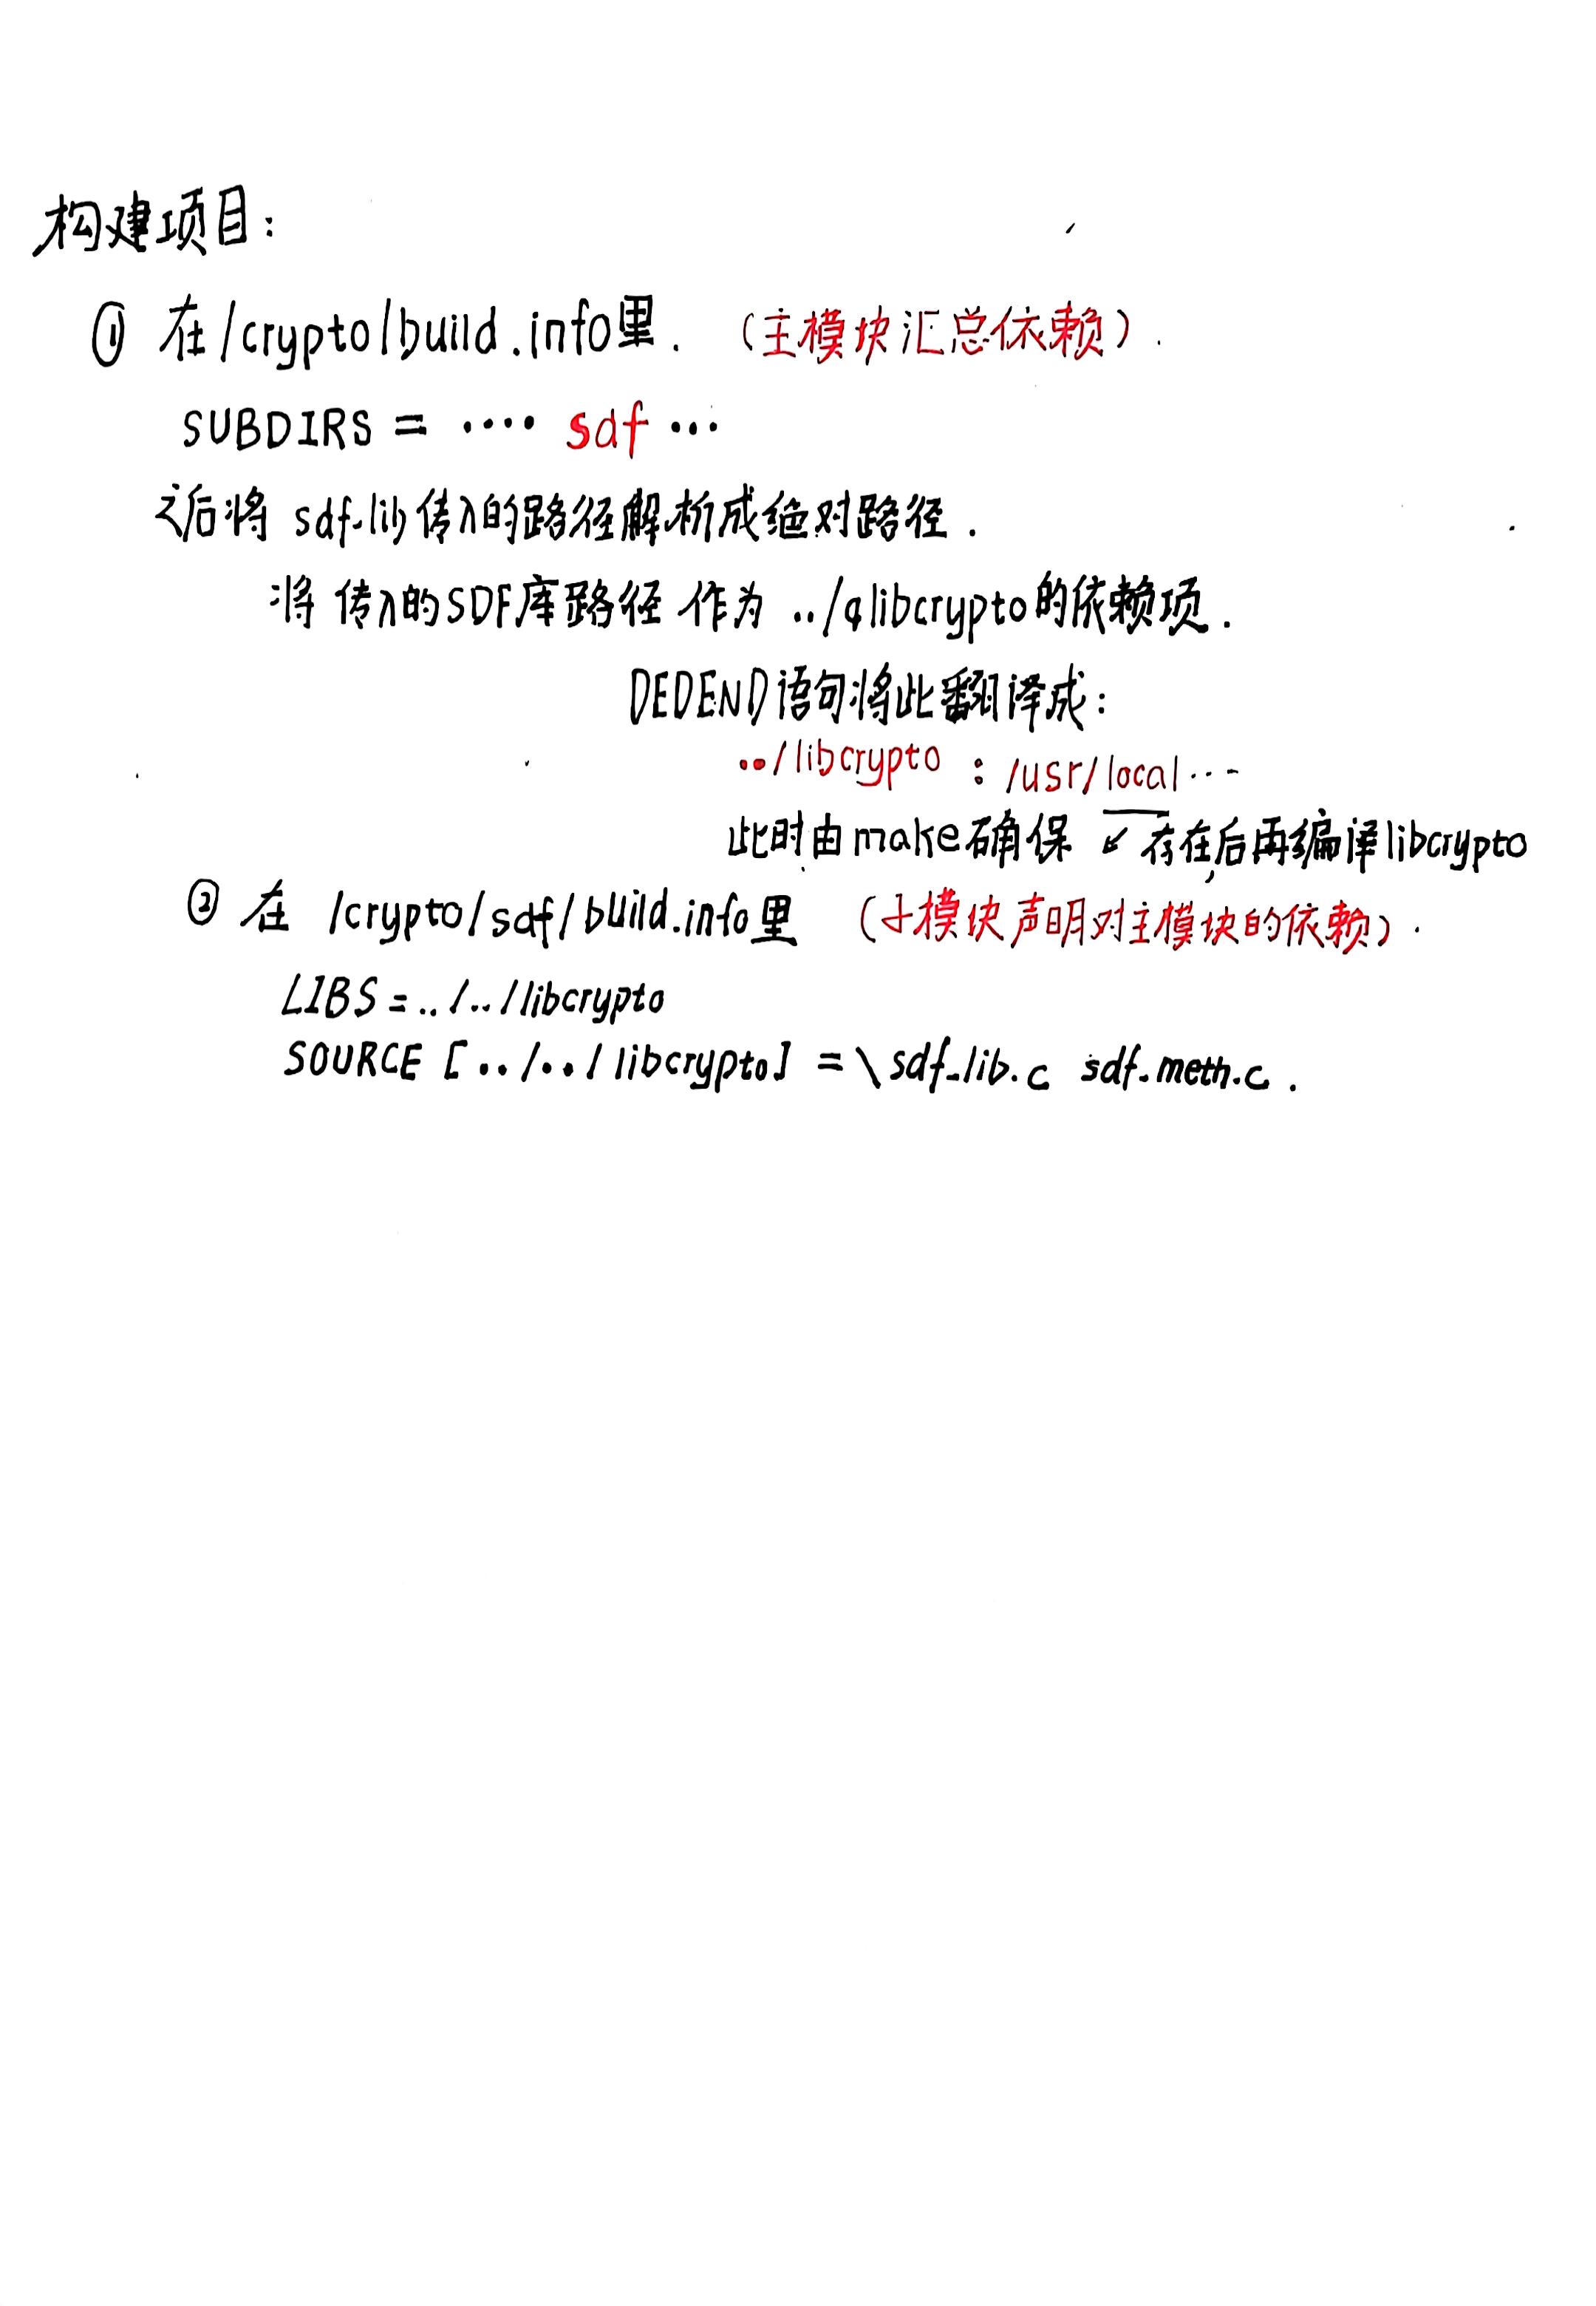 构建项目:
① 在/crypto/build.info里. (主模块汇总依赖).
SUBDIRS = ···· sdf ···
之后将 sdf-lib传入的路径解析成绝对路径.
将 传入的SDF库路径 作为 ../qlibcrypto的依赖项.
DEDEND语句将此翻译成:
../libcrypto : /usr/local ···
此时由make确保 ↙ 存在后再编译libcrypto
② 在 /crypto/sdf/build.info里 (子模块声明对主模块的依赖).
LIBS = ../../libcrypto
SOURCE [../../libcrypto] = \ sdf_lib.c sdf_meth.c .